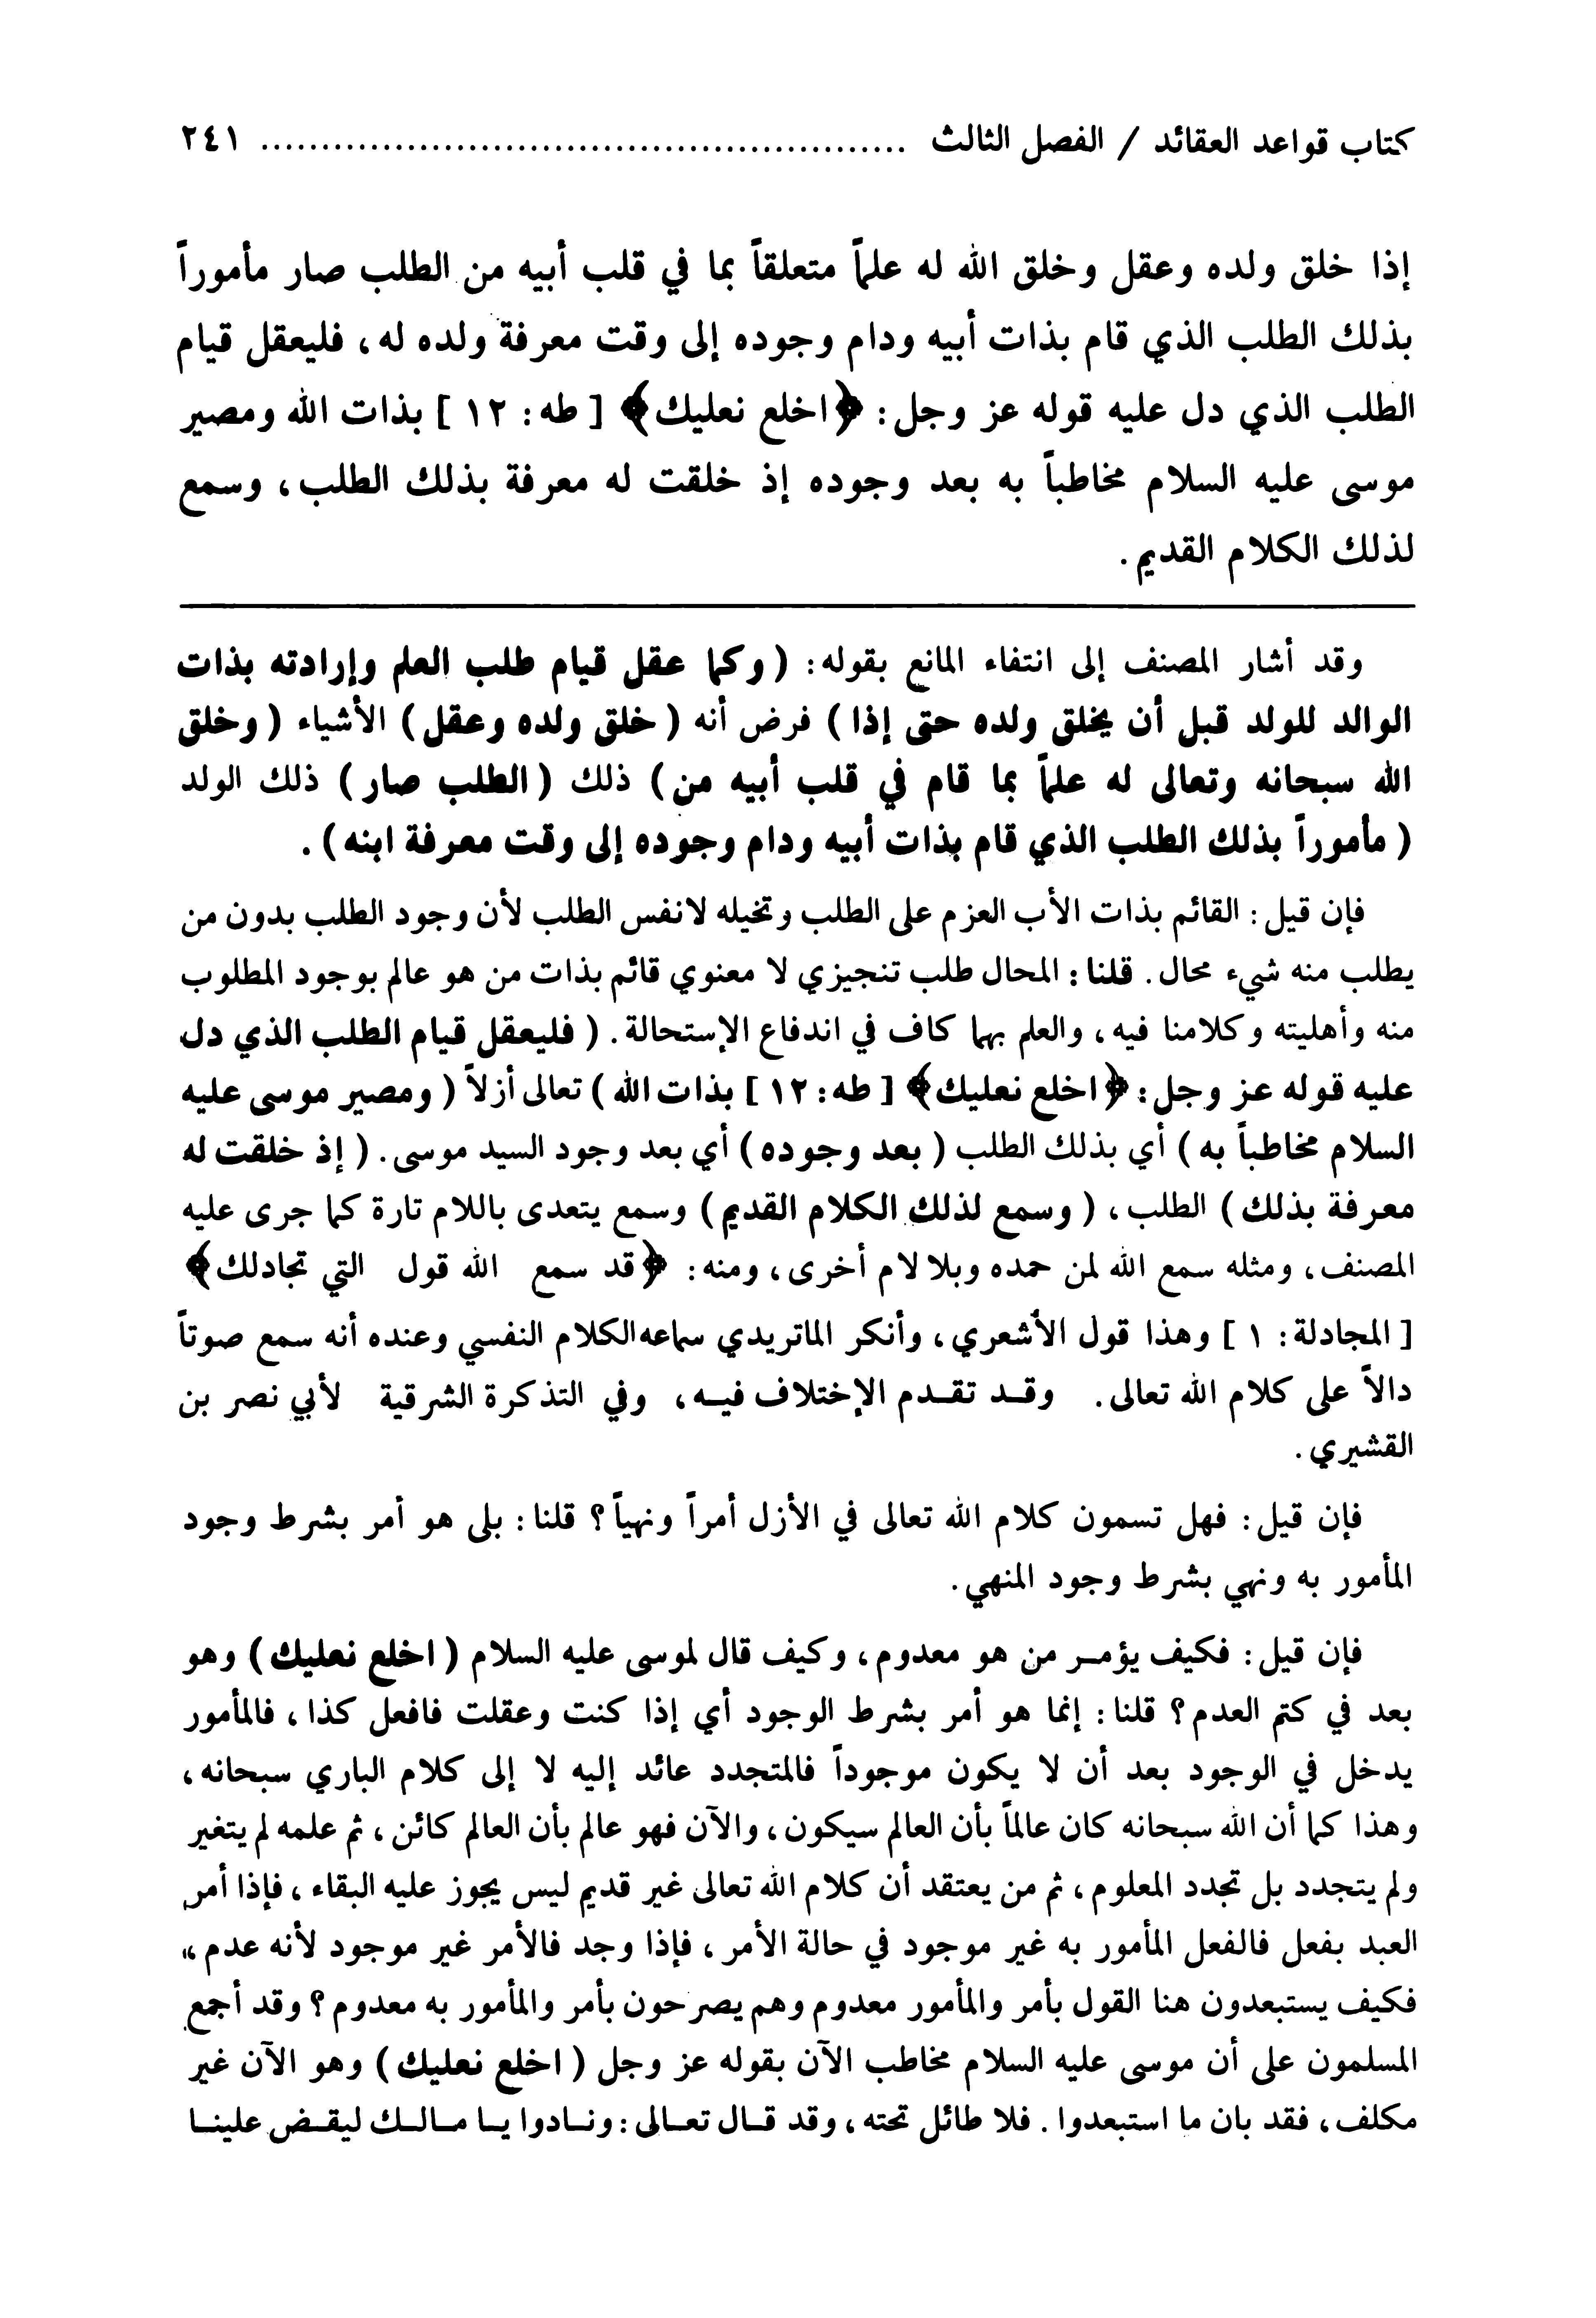 كتاب قواعد العقائد / الفصل الثالث ..................................................... ٢٤١
إذا خلق ولده وعقل وخلق الله له علماً متعلقاً بما في قلب أبيه من الطلب صار مأموراً
بذلك الطلب الذي قام بذات أبيه ودام وجوده إلى وقت معرفة ولده له، فليعقل قيام
الطلب الذي دل عليه قوله عز وجل: ﴿اخلع نعليك﴾ [ طه: ١٢ ] بذات الله ومصير
موسى عليه السلام مخاطباً به بعد وجوده إذ خلقت له معرفة بذلك الطلب، وسمع
لذلك الكلام القديم.
وقد أشار المصنف إلى انتفاء المانع بقوله: ( وكما عقل قيام طلب العلم وإرادته بذات
الوالد للولد قبل أن يخلق ولده حتى إذا ) فرض أنه ( خلق ولده وعقل ) الأشياء ( وخلق
الله سبحانه وتعالى له علماً بما قام في قلب أبيه من ) ذلك ( الطلب صار ) ذلك الولد
( مأموراً بذلك الطلب الذي قام بذات أبيه ودام وجوده إلى وقت معرفة ابنه ) .
فإن قيل: القائم بذات الأب العزم على الطلب وتخيله لا نفس الطلب لأن وجود الطلب بدون من
يطلب منه شيء محال. قلنا: المحال طلب تنجيزي لا معنوي قائم بذات من هو عالم بوجود المطلوب
منه وأهليته وكلامنا فيه، والعلم بهما كاف في اندفاع الإستحالة. ( فليعقل قيام الطلب الذي دل
عليه قوله عز وجل: ﴿اخلع نعليك﴾ [ طه: ١٢ ] بذات الله ) تعالى أزلاً ( ومصير موسى عليه
السلام مخاطباً به ) أي بذلك الطلب ( بعد وجوده ) أي بعد وجود السيد موسى. ( إذ خلقت له
معرفة بذلك ) الطلب، ( وسمع لذلك الكلام القديم ) وسمع يتعدى باللام تارة كما جرى عليه
المصنف، ومثله سمع الله لمن حمده وبلا لام أخرى، ومنه: ﴿قد سمع الله قول التي تجادلك﴾
[ المجادلة: ١ ] وهذا قول الأشعري، وأنكر الماتريدي سماعه الكلام النفسي وعنده أنه سمع صوتاً
دالاً على كلام الله تعالى. وقـد تقـدم الإختلاف فيـه، وفي التذكرة الشرقية لأبي نصر بن
القشيري.
فإن قيل: فهل تسمون كلام الله تعالى في الأزل أمراً ونهياً؟ قلنا: بلى هو أمر بشرط وجود
المأمور به ونهي بشرط وجود المنهي.
فإن قيل: فكيف يؤمـر من هو معدوم، وكيف قال لموسى عليه السلام ( اخلع نعليك ) وهو
بعد في كتم العدم؟ قلنا: إنما هو أمر بشرط الوجود أي إذا كنت وعقلت فافعل كذا، فالمأمور
يدخل في الوجود بعد أن لا يكون موجوداً فالمتجدد عائد إليه لا إلى كلام الباري سبحانه،
وهذا كما أن الله سبحانه كان عالماً بأن العالم سيكون، والآن فهو عالم بأن العالم كائن، ثم علمه لم يتغير
ولم يتجدد بل تجدد المعلوم، ثم من يعتقد أن كلام الله تعالى غير قديم ليس يجوز عليه البقاء، فإذا أمر
العبد بفعل فالفعل المأمور به غير موجود في حالة الأمر، فإذا وجد فالأمر غير موجود لأنه عدم،
فكيف يستبعدون هنا القول بأمر والمأمور معدوم وهم يصرحون بأمر والمأمور به معدوم؟ وقد أجمع
المسلمون على أن موسى عليه السلام مخاطب الآن بقوله عز وجل ( اخلع نعليك ) وهو الآن غير
مكلف، فقد بان ما استبعدوا. فلا طائل تحته، وقد قـال تعـالى: ونـادوا يـا مـالـك ليقـض علينـا